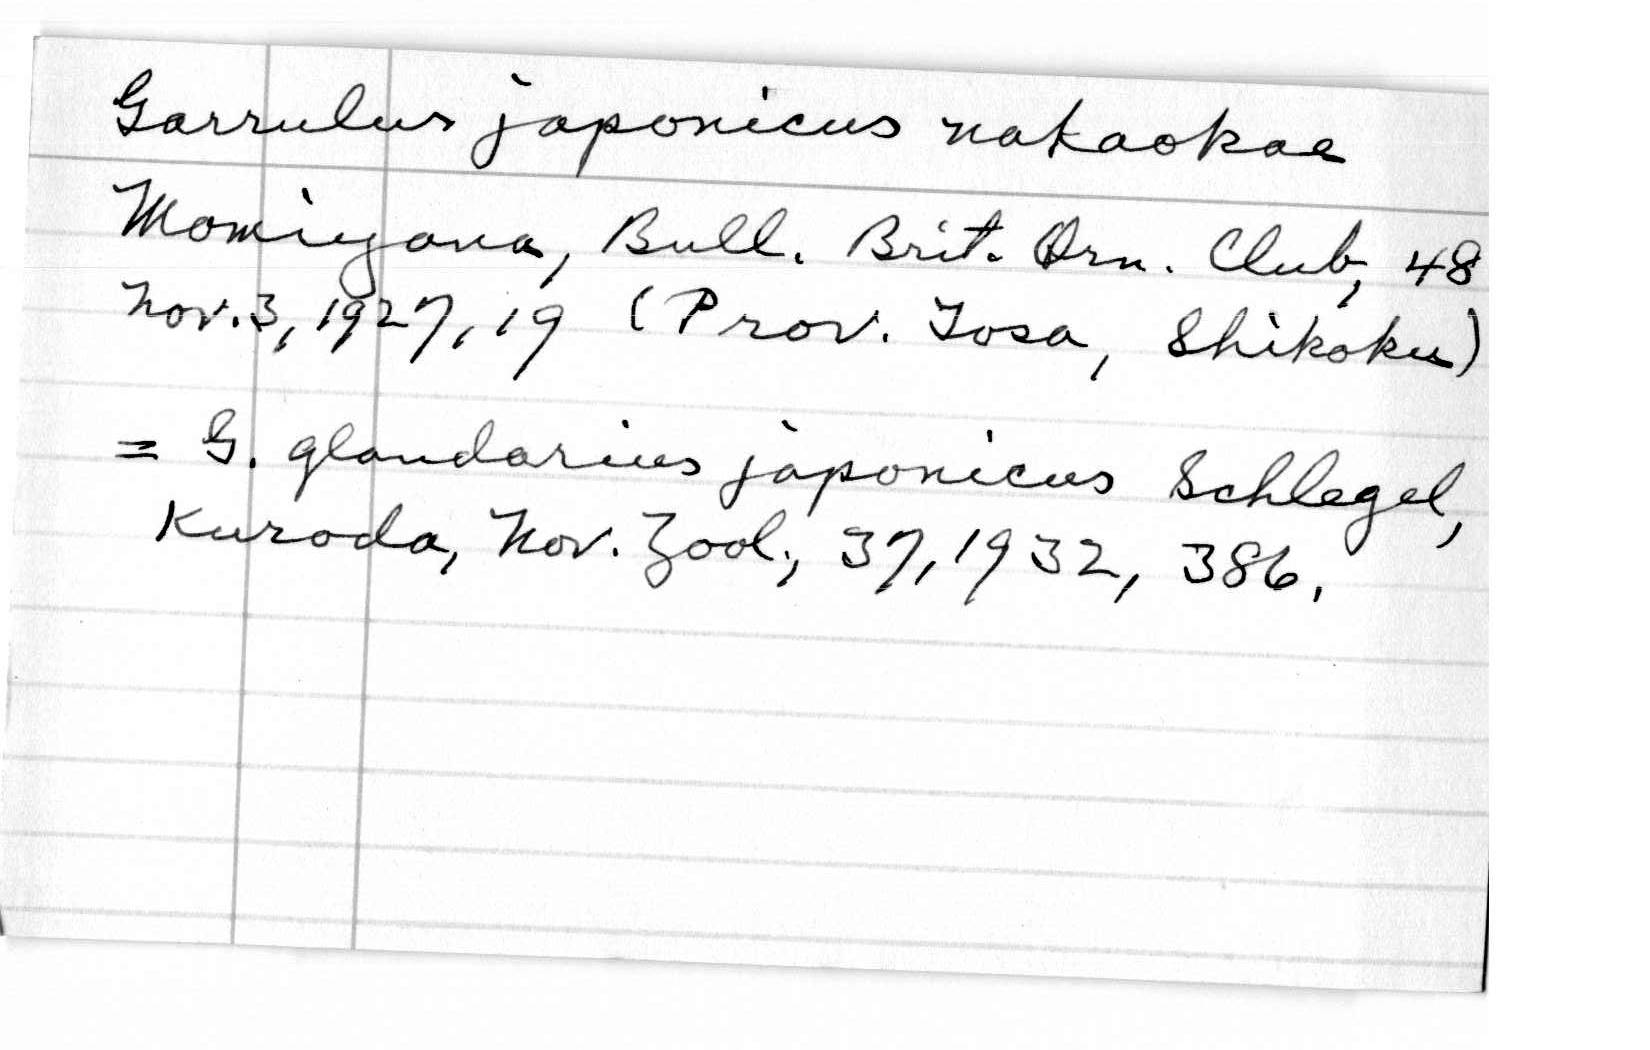 Garrulus japonicus nakaokae
Momiyama, Bull. Brit. Orn. Club, 48
Nov. 3, 1927, 19 (Prov. Tosa, Shikoku)
= G. glandarius japonicus Schlegel,
Kuroda, Nov. Zool., 37, 1932, 386.